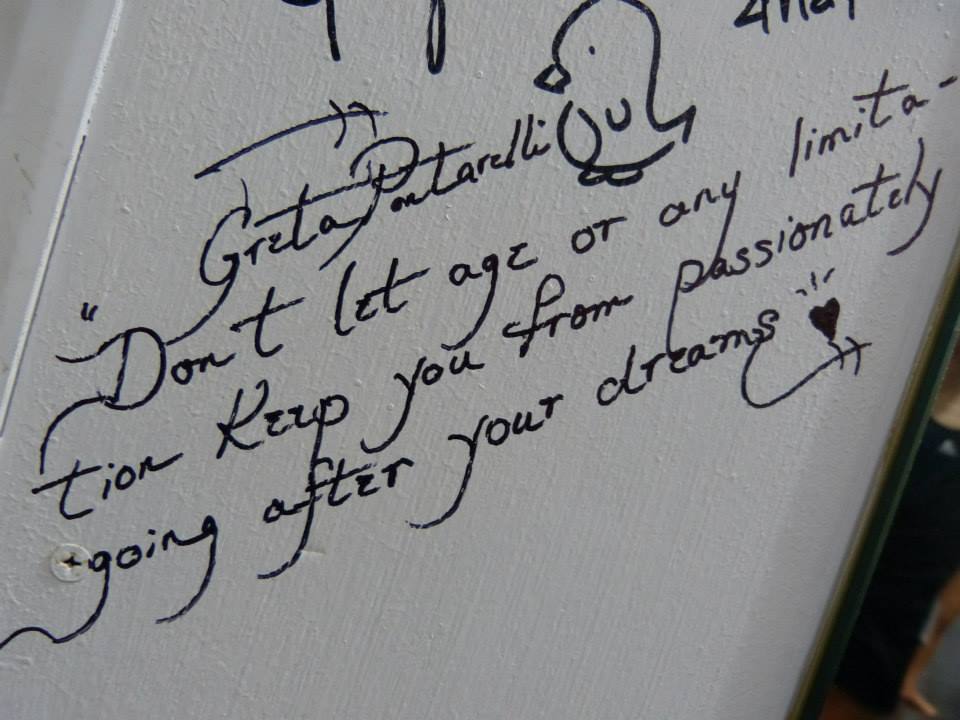 Greta Pontarelli
"Don't let age or any limita-
tion keep you from passionately
going after your dreams